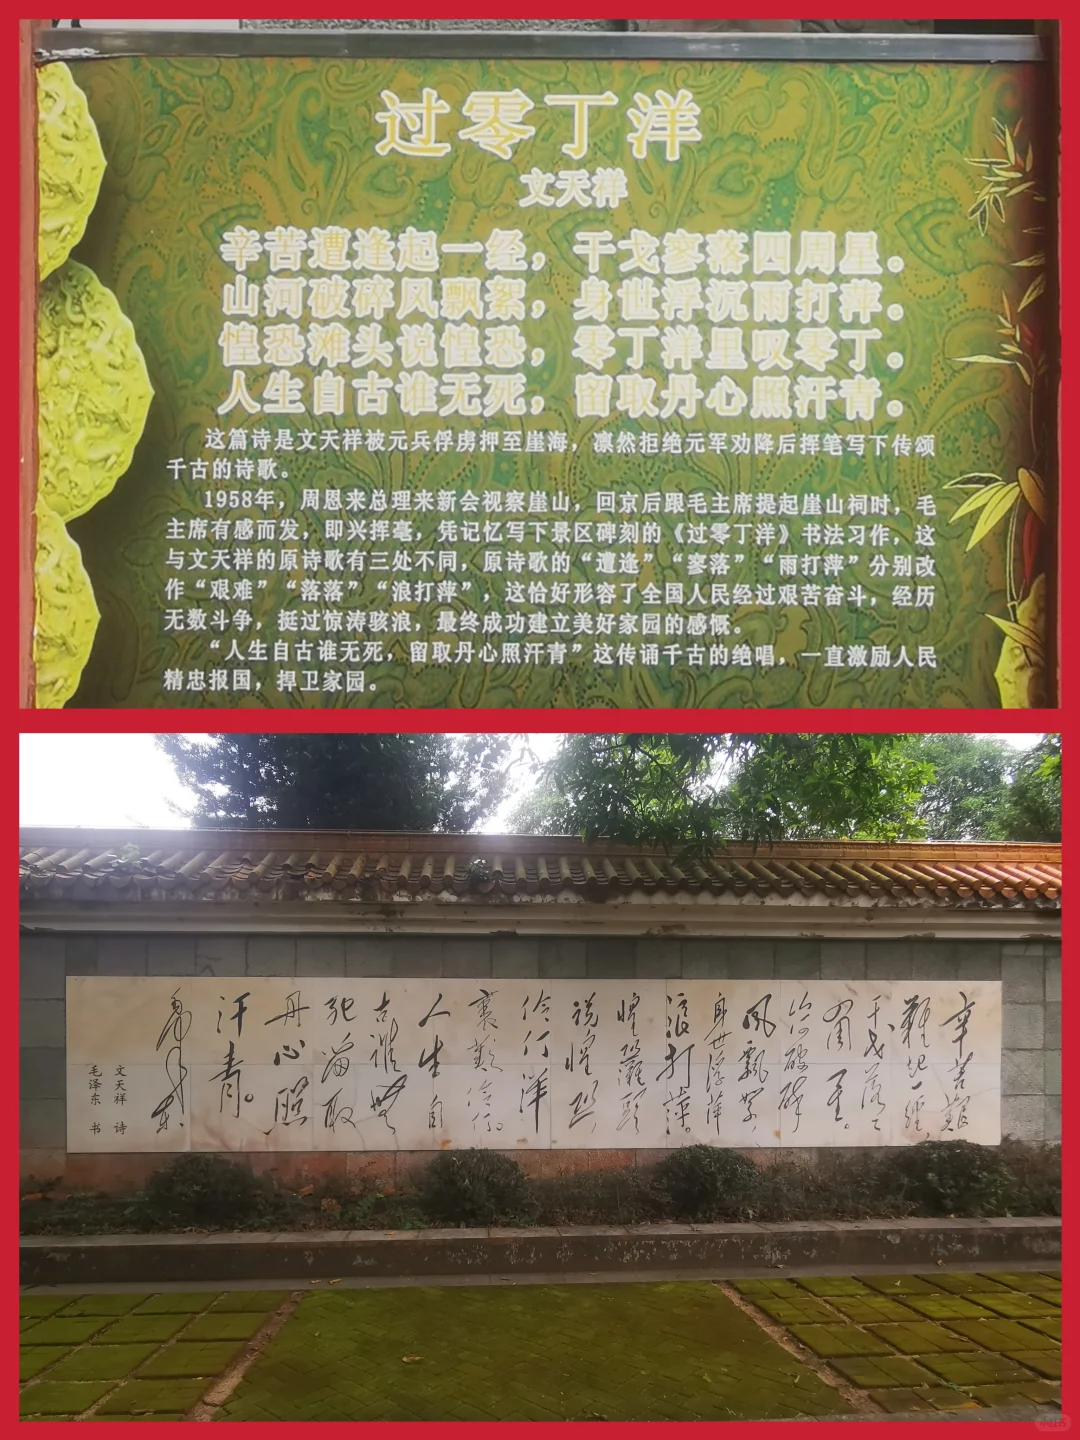 过零丁洋
文天祥
辛苦遭逢起一经，干戈寥落四周星。
山河破碎风飘絮，身世浮沉雨打萍。
惶恐滩头说惶恐，零丁洋里叹零丁。
人生自古谁无死，留取丹心照汗青。
这篇诗是文天祥被元兵俘虏押至崖海，凛然拒绝元军劝降后挥笔写下传颂
千古的诗歌。
1958年，周恩来总理来新会视察崖山，回京后跟毛主席提起崖山祠时，毛
主席有感而发，即兴挥毫，凭记忆写下景区碑刻的《过零丁洋》书法习作，这
与文天祥的原诗歌有三处不同，原诗歌的“遭逢”“寥落”“雨打萍”分别改
作“艰难”“落落”“浪打萍”，这恰好形容了全国人民经过艰苦奋斗，经历
无数斗争，挺过惊涛骇浪，最终成功建立美好家园的感慨。
“人生自古谁无死，留取丹心照汗青”这传诵千古的绝唱，一直激励人民
精忠报国，捍卫家园。
辛苦艱
難起一經，
干戈落落
四周星。
山河破碎
风飄絮，
身世浮萍
浪打萍。
惶恐灘頭
说惶恐，
伶仃洋
裏歎伶仃。
人生自
古誰無
死留取
丹心照
汗青。
毛泽东
文天祥 诗
毛泽东 书
小红书